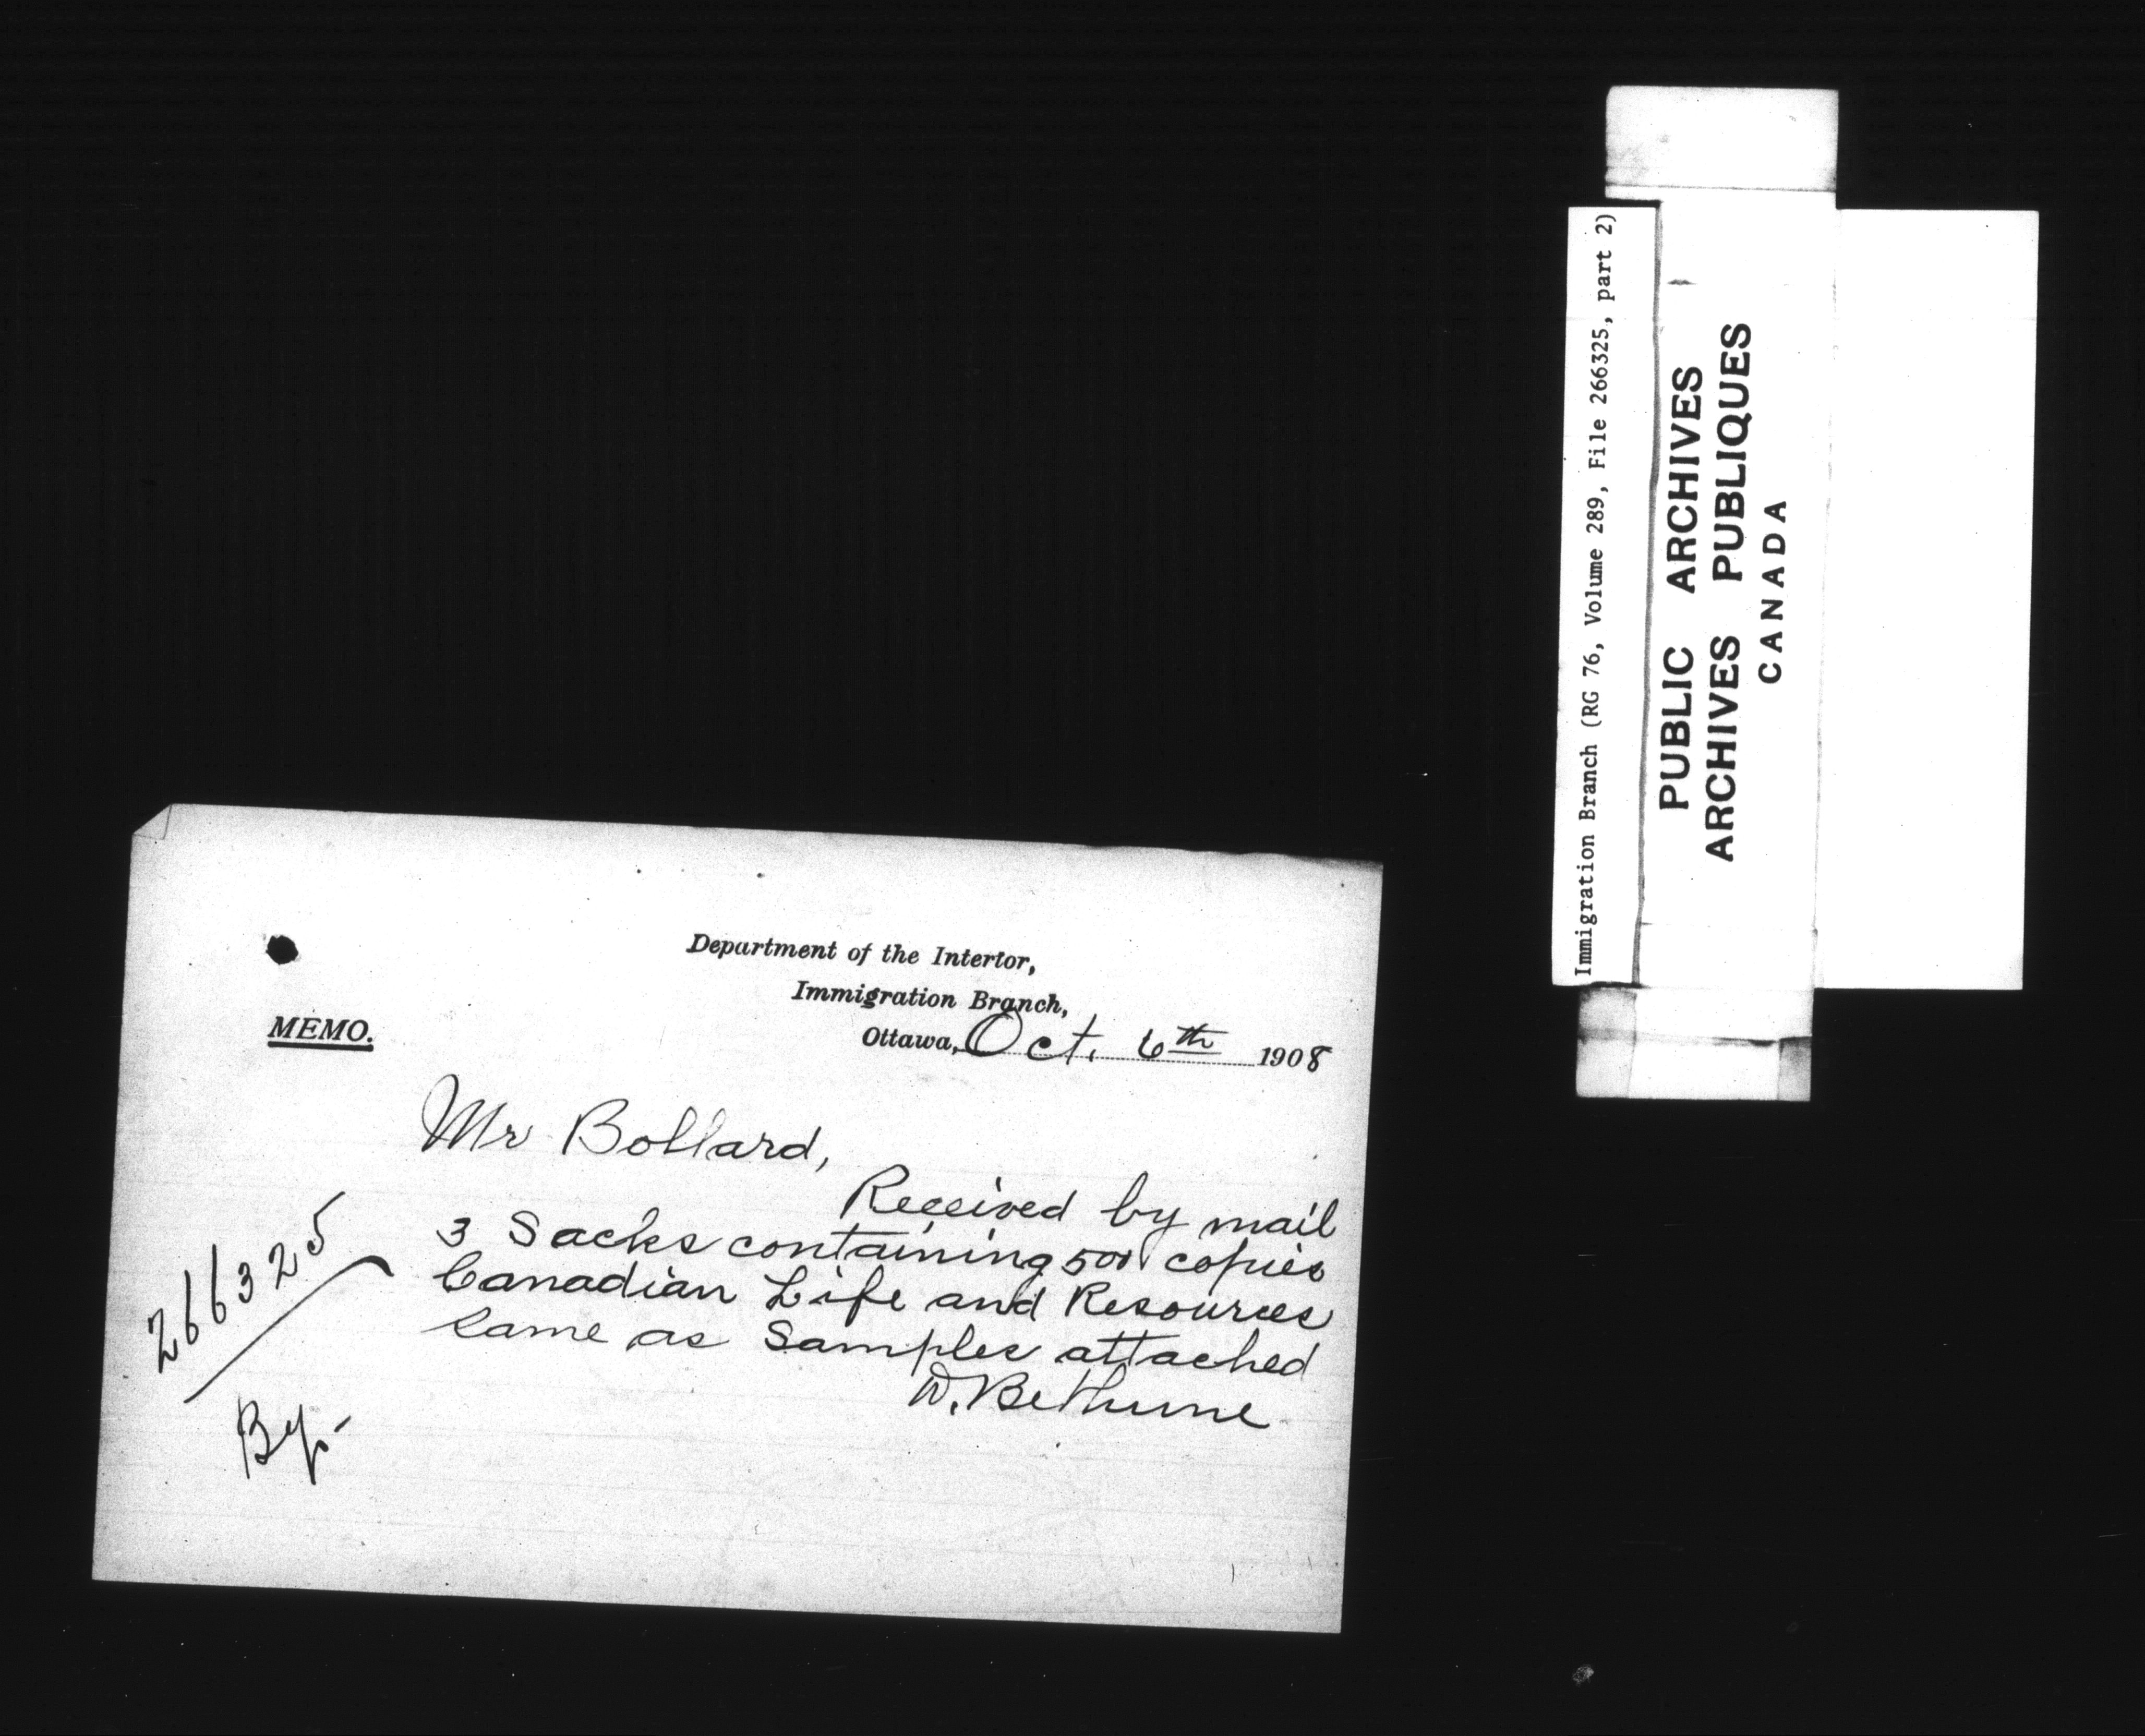 Department of the Interior,
Immigration Branch,
MEMO.
Ottawa, Oct. 6th 1908
Mr Bollard,
Received by mail
3 Sacks containing 500 copies
Canadian Life and Resources
Same as Samples attached
W. Bethune
266325
By.
Immigration Branch (RG 76, Volume 289, File 266325, part 2)
PUBLIC ARCHIVES
ARCHIVES PUBLIQUES
CANADA